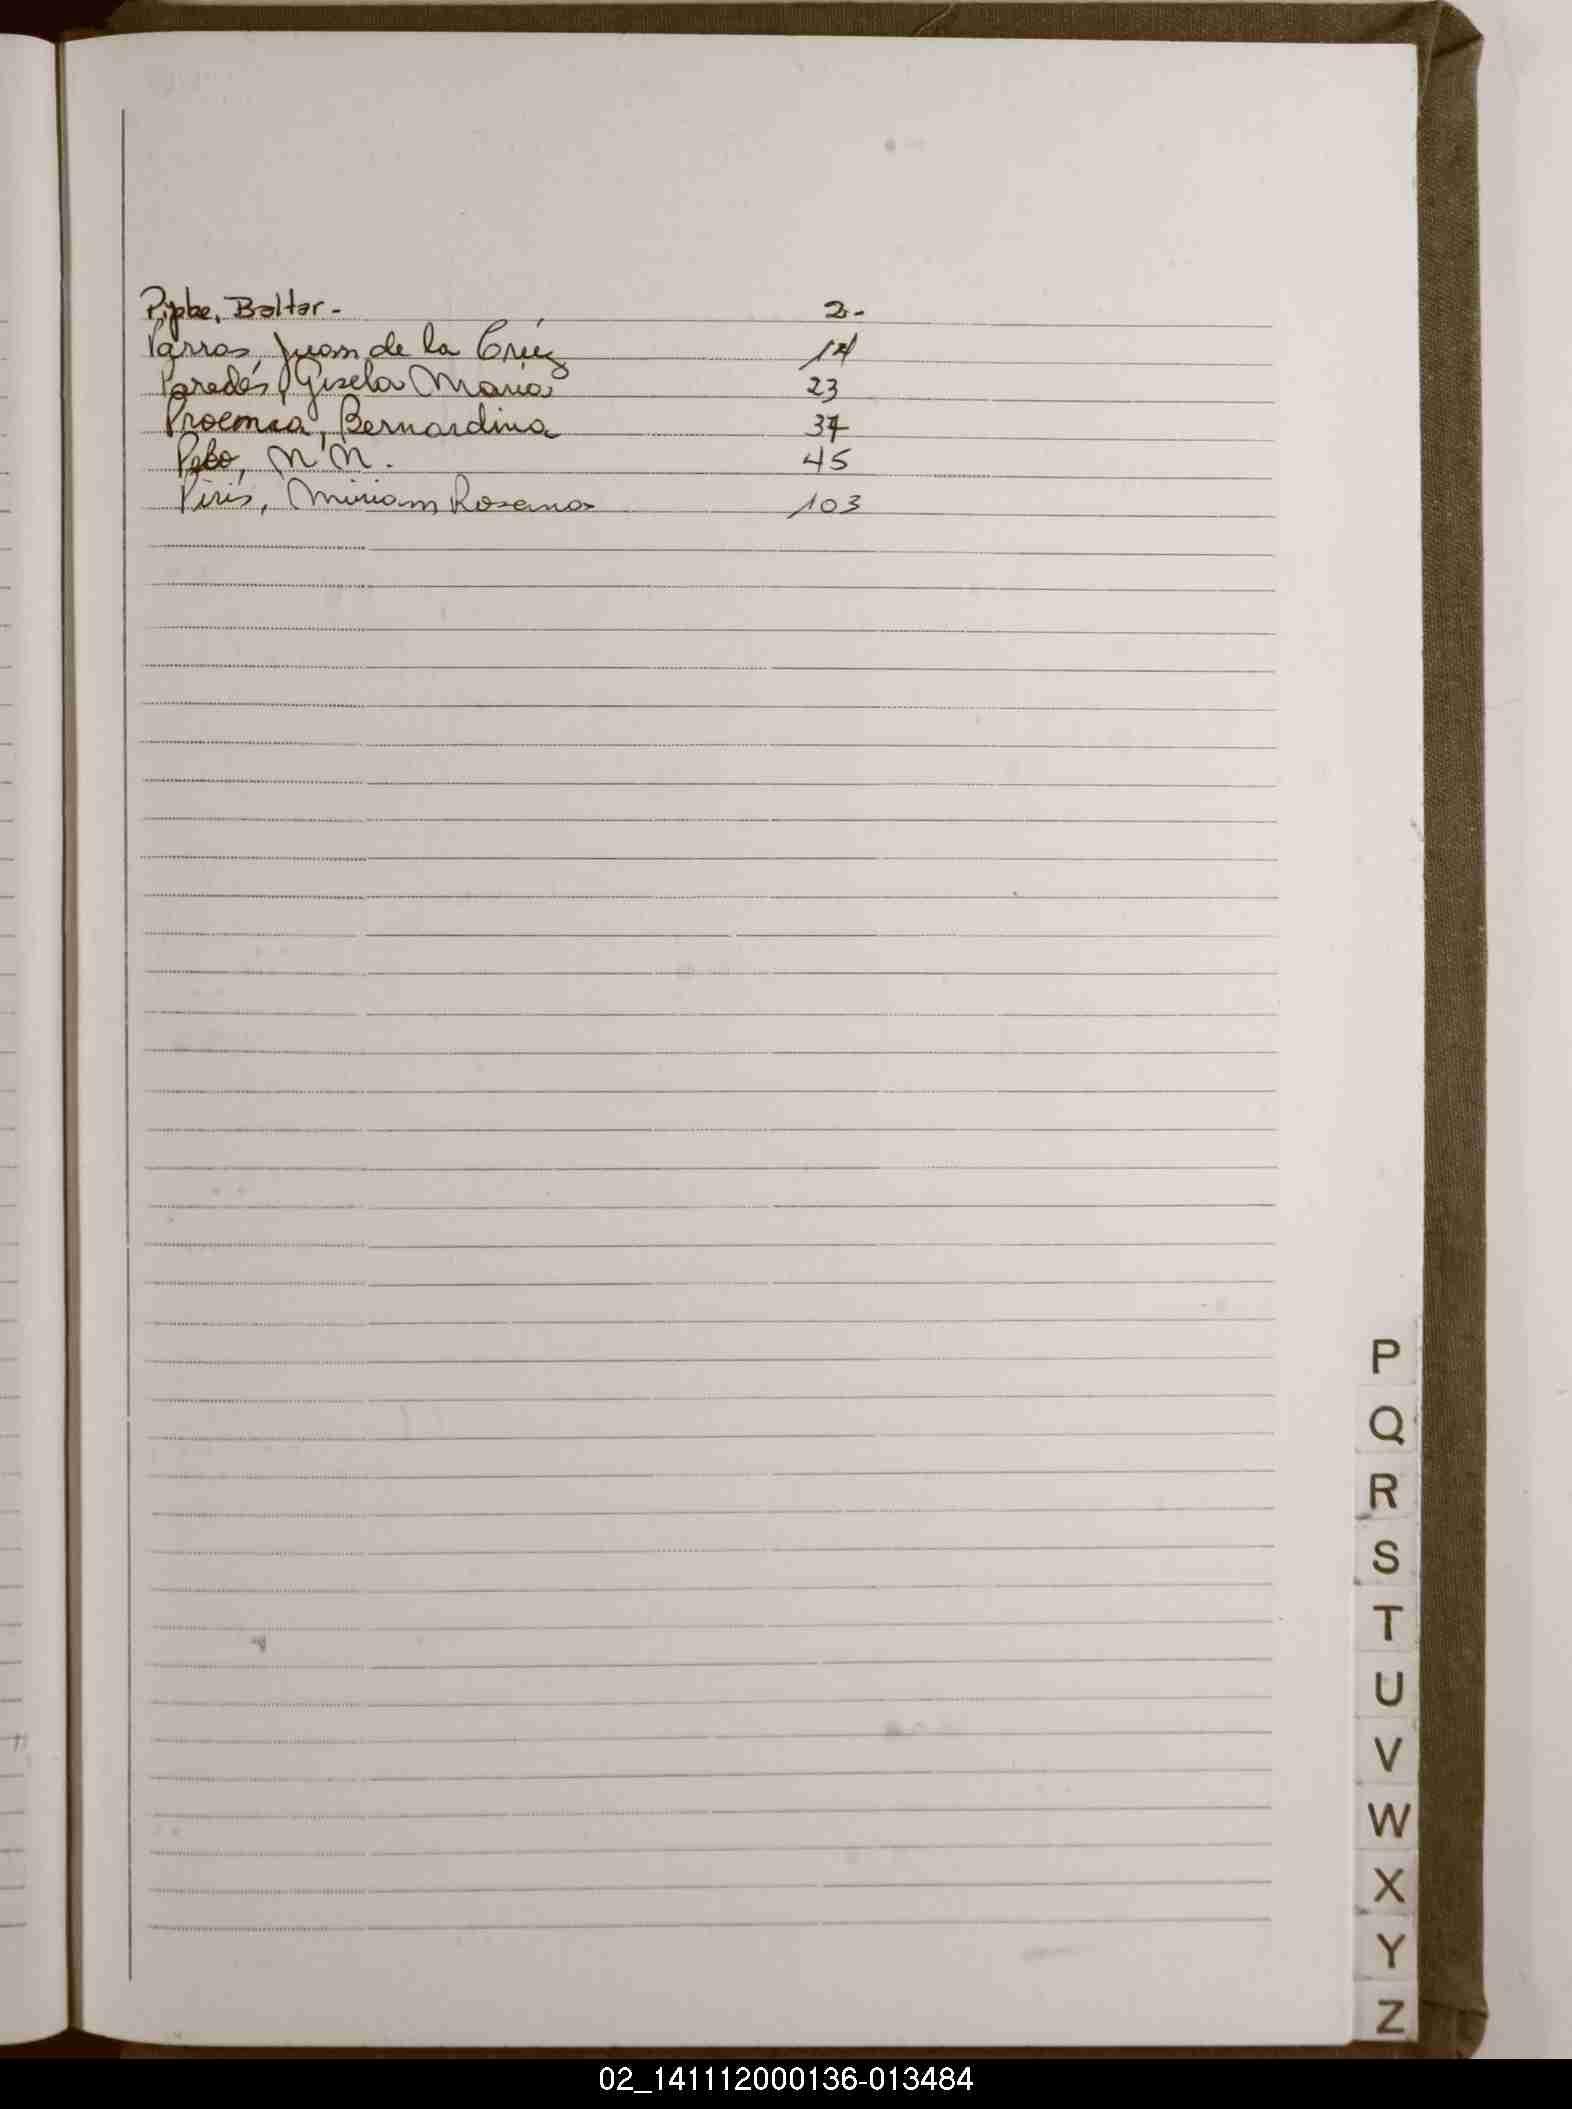 Pipke, Baltar - 2.-
Parras, Juan de la Crúz 14
Paredés, Gisela Maria 23
Proenza, Bernardina 37
Pebo, N N. 45
Piris, Miriam Rosana 103
P
Q
R
S
T
U
V
W
X
Y
Z
02_141112000136-013484